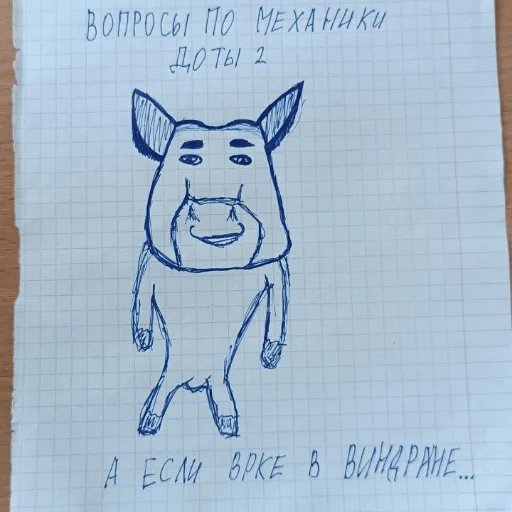 ВОПРОСЫ ПО МЕХАНИКИ
ДОТЫ 2
А ЕСЛИ ВРКЕ В ВИНДРАНЕ...